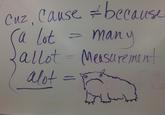 cuz, cause ≠ because
a lot = many
allot = Measurement
alot =